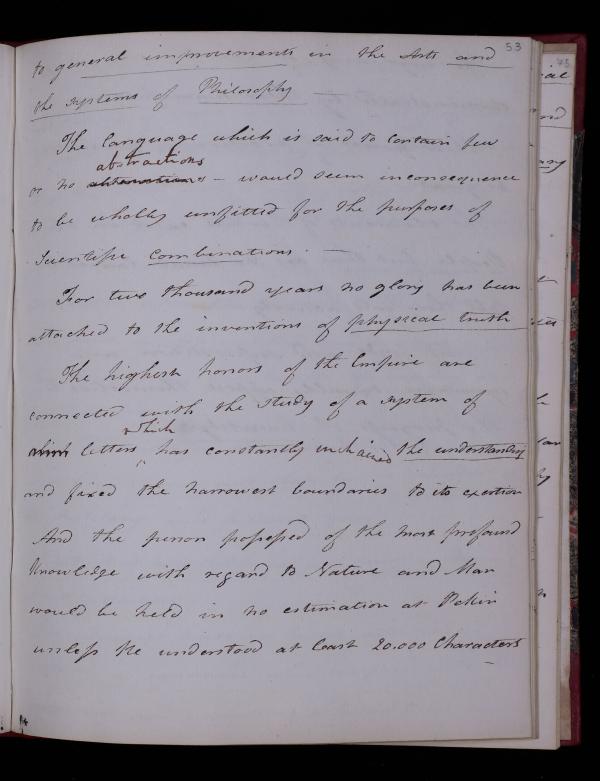 53
to general improvements in the Arts and
the systems of Philosophy —
The language which is said to contain few
abstractions
or no — would seem in consequence
to be wholly unfitted for the purposes of
Scientific Combinations. —
For two thousand years no glory has been
attached to the inventions of physical truth
The highest honors of the Empire are
connected with the study of a system of
which
letters has constantly enchained the understanding
and fixed the narrowest boundaries to its exertion
And the person possessed of the most profound
Knowledge with regard to Nature and Man
would be held in no estimation at Pekin
unless he understood at least 20.000 Characters